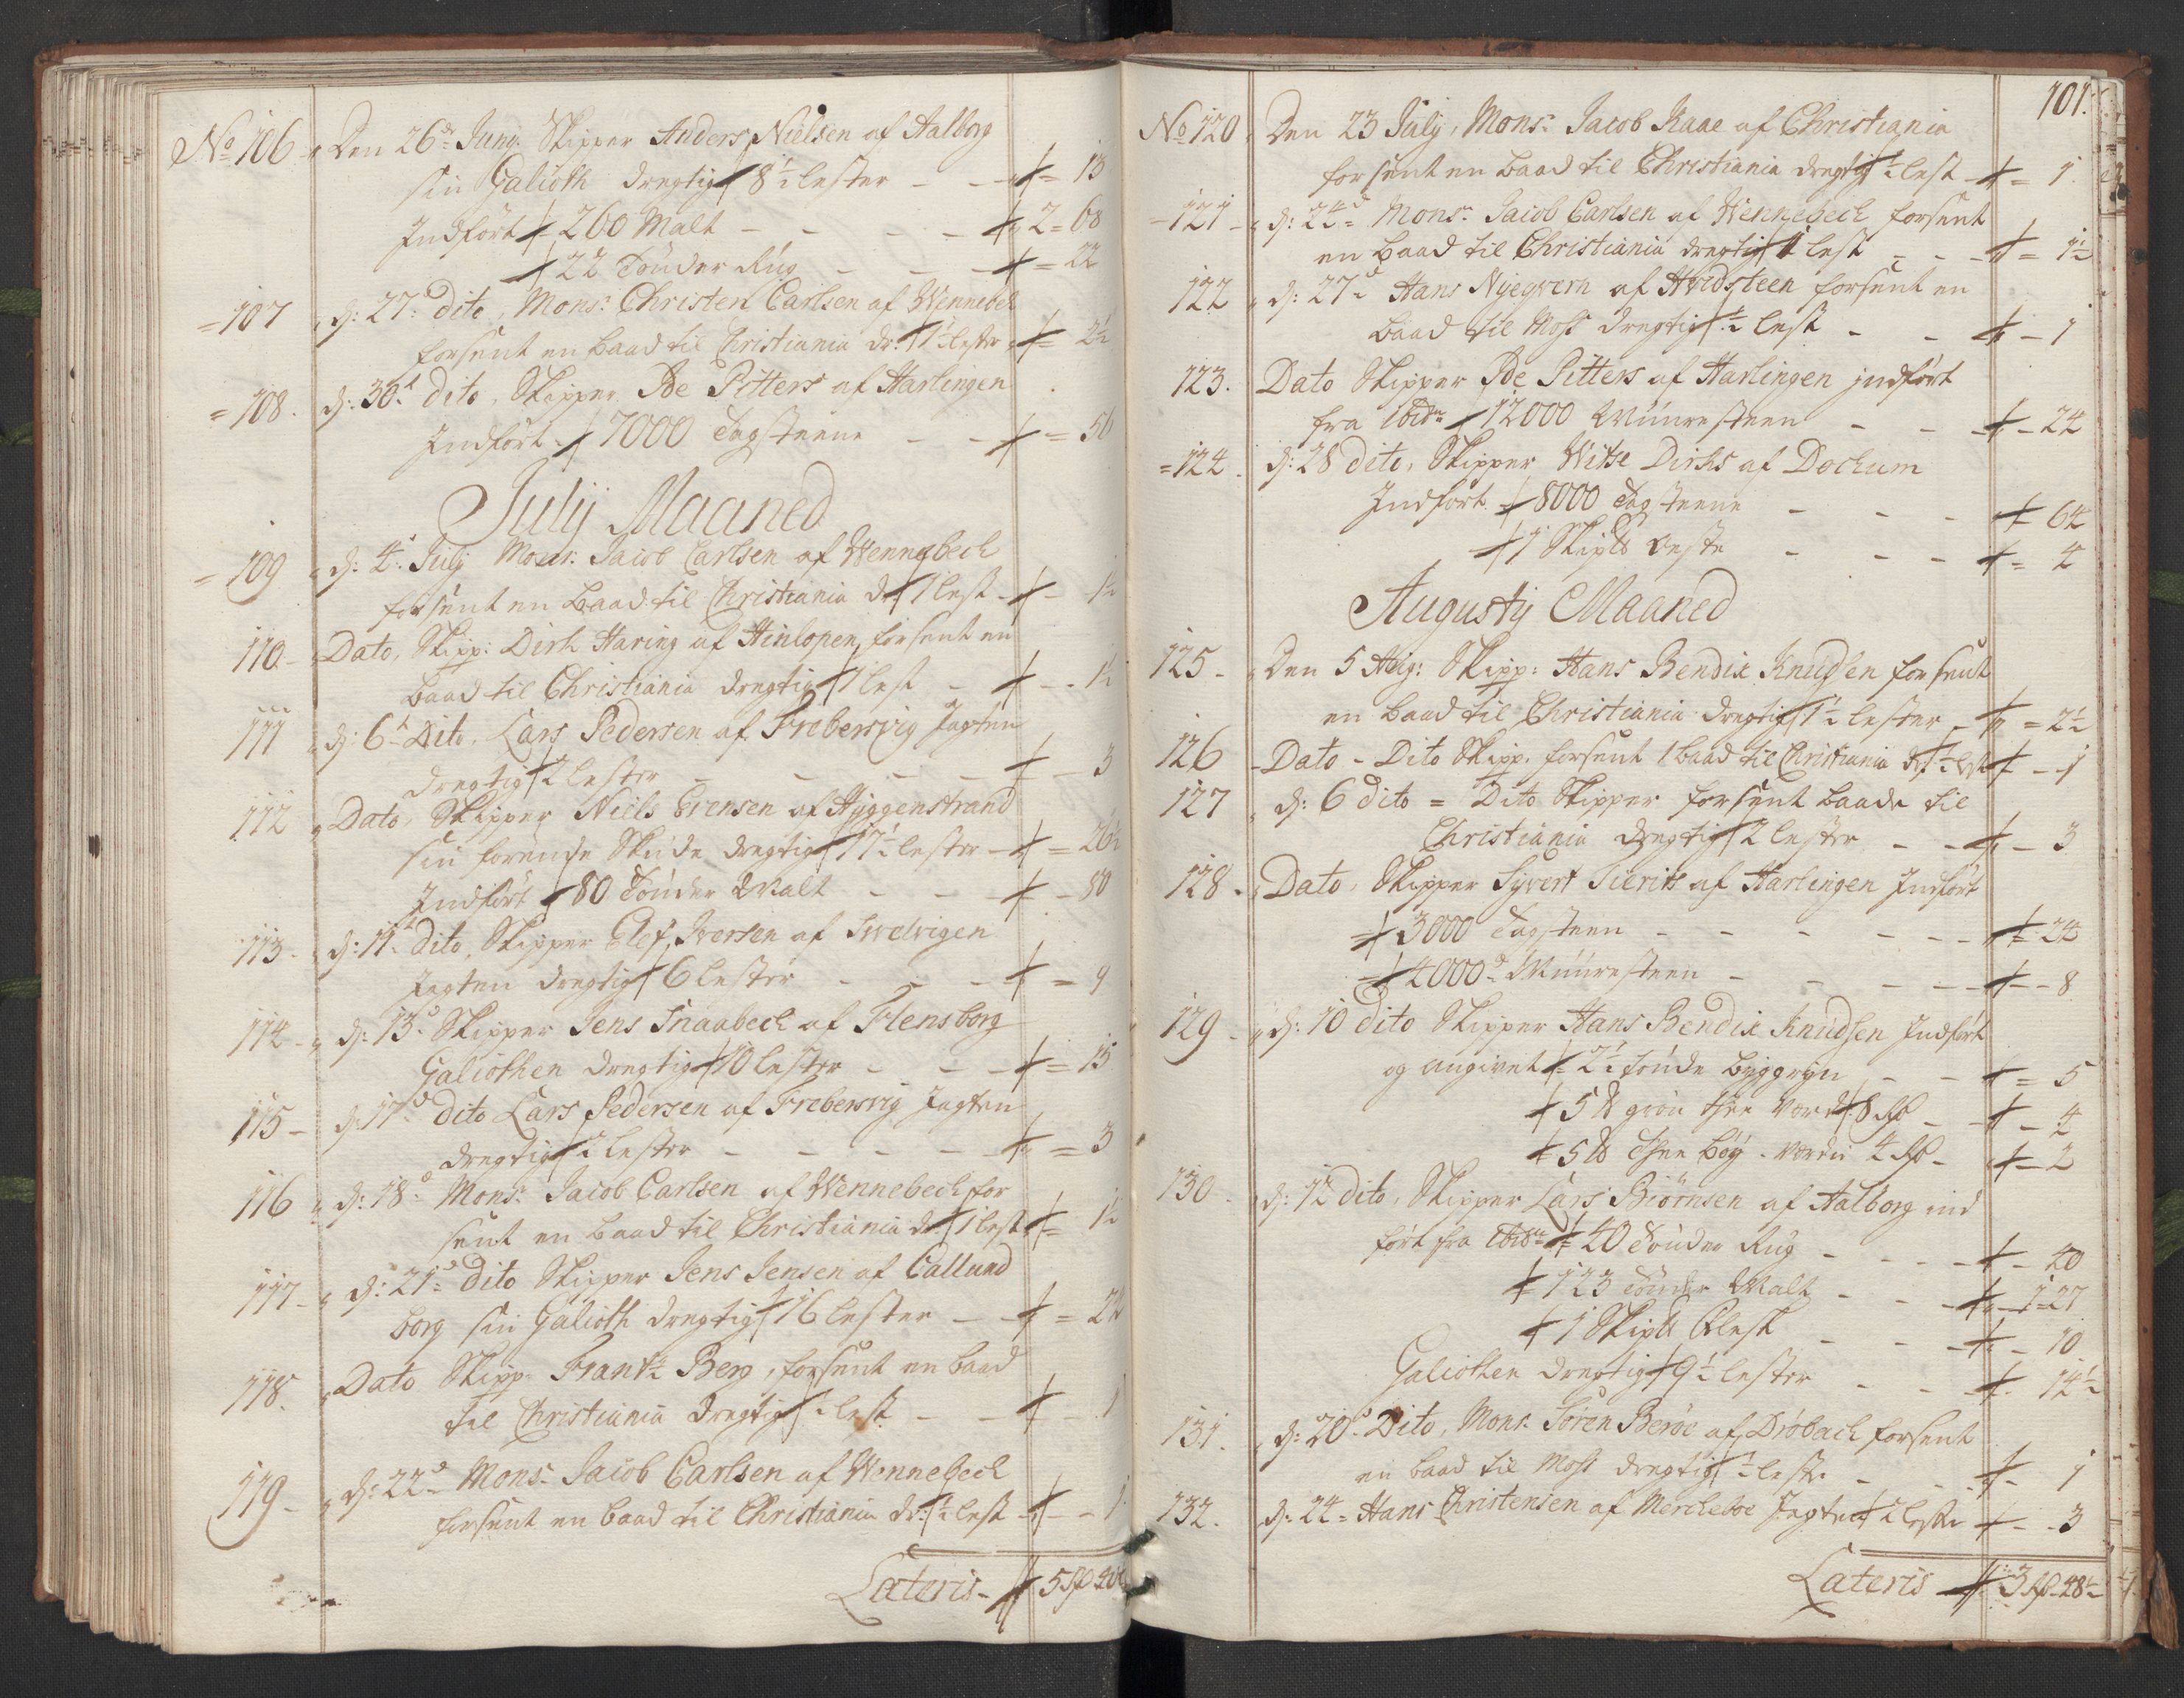 No 106 Den 26de Juny. Skipper Anders Nielsen af Aalborg
sin Galioth drægtig 8½ lester - - 13
Indført 260 Malt - - - - 2 = 68
22 Tønder Rug - - - 22
107 d: 27de dito, Monsr Christen Carlsen af Wennebek
forsent en baad til Christiania dr: 1½ lester 2½
108. d: 30d dito, Skipper Ide Pitters af Harlingen
Indført 7000 Tagsteene - - 56
Julij Maaned
109 d: 4de July Monsr: Jacob Carlsen af Wennebech
forsent en Baad til Christiania dr 1 lest - 1½
110 Dato, Skipp: Dirk Haring af Hinlopen, forsent en
baad til Christiania drægtig 1 lest - - 1½
111 d: 6d Dito, Lars Pedersen af Frebersvig Jagten
drægtig 2 lester - - - - 3
112 Dato, Skipper Niels Evensen af Hyggenstrand
sin førende Skude drægtig 17½ lester - 26½
Indført 80 Tønder Malt - - - 80
113 d: 11d dito, Skipper Olef Iversen af Svelvigen
Jagten drægtig 6 lester - - - 9
114 d: 13d Skipper Jens Snaabech af Flensborg
Galiothen drægtig 10 lester - - - 15
115 d: 17d dito Lars Pedersen af Frebersvig Jagten
drægtig 2 lester - - - - - 3
116 d: 18d Monsr. Jacob Carlsen af Wennebech for
sent en baad til Christiania dr 1 lest 1½
117 d: 21d dito Skipper Jens Jensen af Callund
borg sin Galioth drægtig 16 lester - - 24
118. Dato Skipp: Frantz Berg, forsent en baad
til Christiania drægtig ½ lest - - - 1
119 d: 22d Monsr Jacob Carlsen af Wennebech
forsent en baad til Christiania dr: ½ lest - 1
Lateris
101.
No 120 Den 23 July, Monsr Jacob Kaae af Christiania
forsent en baad til Christiania drægtig ½ lest - 1
121 d: 24d Monsr Jacob Carlsen af Wennebech forsent
en baad til Christiania drægtig 1 lest - - - 1½
122 d: 27d Hans Nyegvern af Hvidsteen forsent en
baad til Moss drægtig ½ lest - - - 1
123. Dato Skipper Ide Pitters af Harlingen indført
fra ibidm 12000 Muuresteen - - - 24
124 d: 28 dito, Skipper Witse Dirks af Dockum
Indført 8000 Tagsteene - - - 64
1 Skip - - - 4
Augustij Maaned
125 Den 5 Aug: Skipp: Hans Bendix Knudsen forsent
en baad til Christiania drægtig 1½ lester - 2½
126 Dato - Dito Skipp. forsent 1 baad til Christiania dr ½ lest - 1
127 d: 6 dito = Dito Skipper forsent baade til
Christiania drægtig 2 lester - - - 3
128 Dato, Skipper Syvert Sierits af Harlingen Indført
3000 Tagsteen - - - - - 24
4000d Muuresteen - - - - - 8
129 d: 10 dito Skipper Hans Bendix Knudsen Indført
og angivet 2½ tønde byggryn - - 5
5 ℔ grøn thee værd 8 Rd - 4
5 ℔ Thee Boy - værdi 4 Rd - 2
130 d: 12 dito, Skipper Lars Biørnsen af Aalborg ind
ført fra ibidm 40 Tønder Rug - - - - 40
123 Tønder Malt - - - 1 = 27
1 Skip℔ Flesk - - - 10
Galiothen drægtig 9½ lester - - - 14½
131. d: 20d Dito, Monsr Søren Berøe af Drøbach forsent
en baad til Moss drægtig ½ lest - - 1
132. d: 24 = Hans Christensen af Mercheboe Jagten 2 lester - 3
Lateris 3 Rd 48½